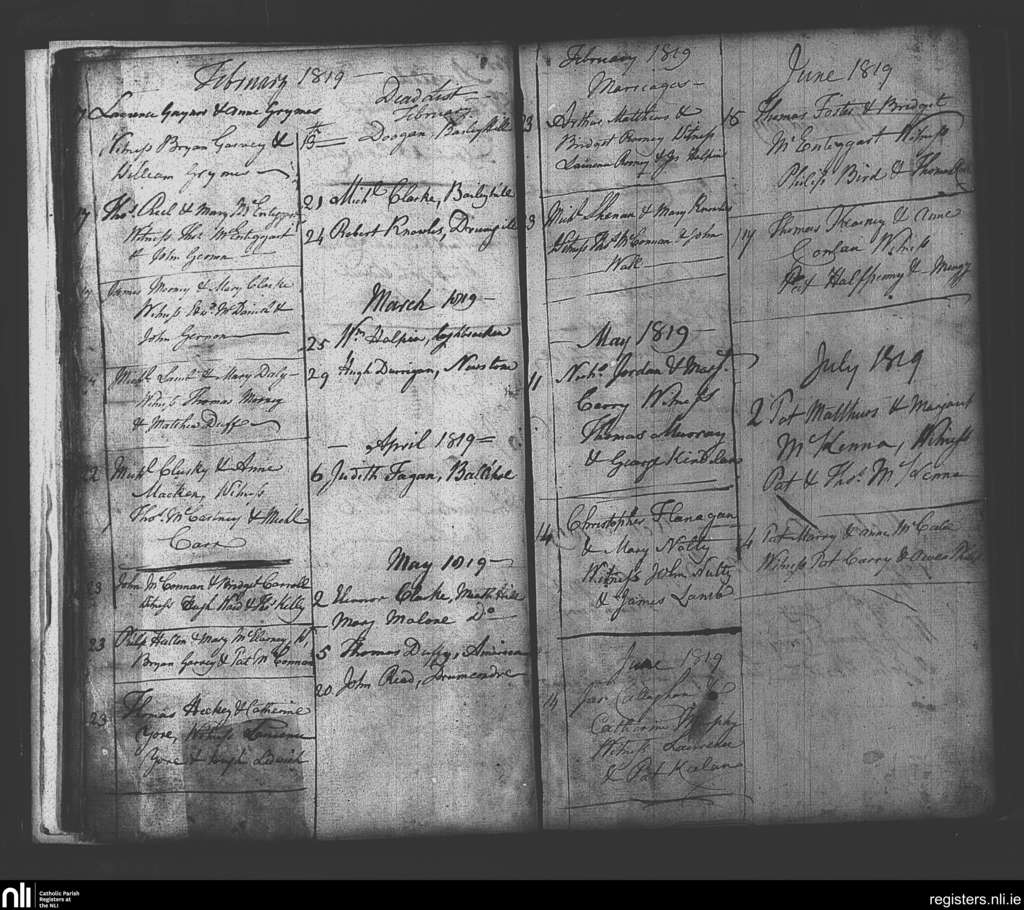 February 1819
7 Laurence Gaynor & Anne Grymes
Witness Bryan Garvey &
William Grymes
17 Thos. Reel & Mary McEnteggart
Witness Thos. McEnteggart
& John Gernon
James Morney & Mary Clarke
Witness Edwd. McDaniel &
John Gernon
Michl. Lamb & Mary Daly
Witness Thomas Morney
& Mathew Duffe
22 Michl. Clusky & Anne
Macken, Witness
Thos. McCartney & Michl.
Carr
23 John McConnan & Bridget Carroll
Witness Hugh Ward & Thos. Kelly
23 Philip Hatton & Mary McElarney,
Bryan Garvey & Pat McConnan
23 Thomas Hickey & Catherine
Yore, Witness Laurence
Yore & Hugh
Dead List
February
13th Doogan, Barleyhill
21 Michl. Clarke, Barleyhill
24 Robert Knowles,
March 1819
25 Wm. Halpin, Loghbracken
29 Hugh Durrigan, Newstone
April 1819
6 Judith Fagan, Ballihoe
May 1819
2 Eleonor Clarke, Meath Hill
Mary Malone Do
5 Thomas Duffy, America
20 John Read, Drumcondre
February 1819
Marreages
23 Arthur Matthews &
Bridget Rooney Witness
Laurence Rooney & Js. Halpin
23 Michl. Shanan & Mary Knowles
Witness Thos. McConnan & John
Wall
May 1819
11 Nichs. Jordan & Margt.
Cerry Witness
Thomas Murray
& George Kindelan
14 Christopher Flanagan
& Mary Nolty
Witness John Nulty
& James Lamb
June 1819
14 Jas. Callaghan &
Catharine Murphy
Witness Laurence
& Pat Kalan
June 1819
15 Thomas Foster & Bridget
McEnteggart Witness
Philip Bird & Thomas
17 Thomas Kearney & Anne
Conlan Witness
Pat Halfpenny &
July 1819
2 Pat Matthews & Margaret
McKenna, Witness
Pat & Thos. McKenna
4 Pat Marry & Anne McCabe
Witness Pat Carry & Owen
nli
Catholic Parish
Registers at
the NLI
registers.nli.ie